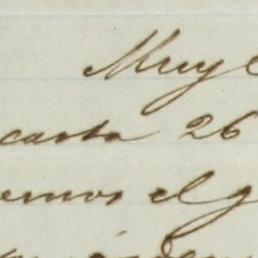 Muy
carta 26
emos el g